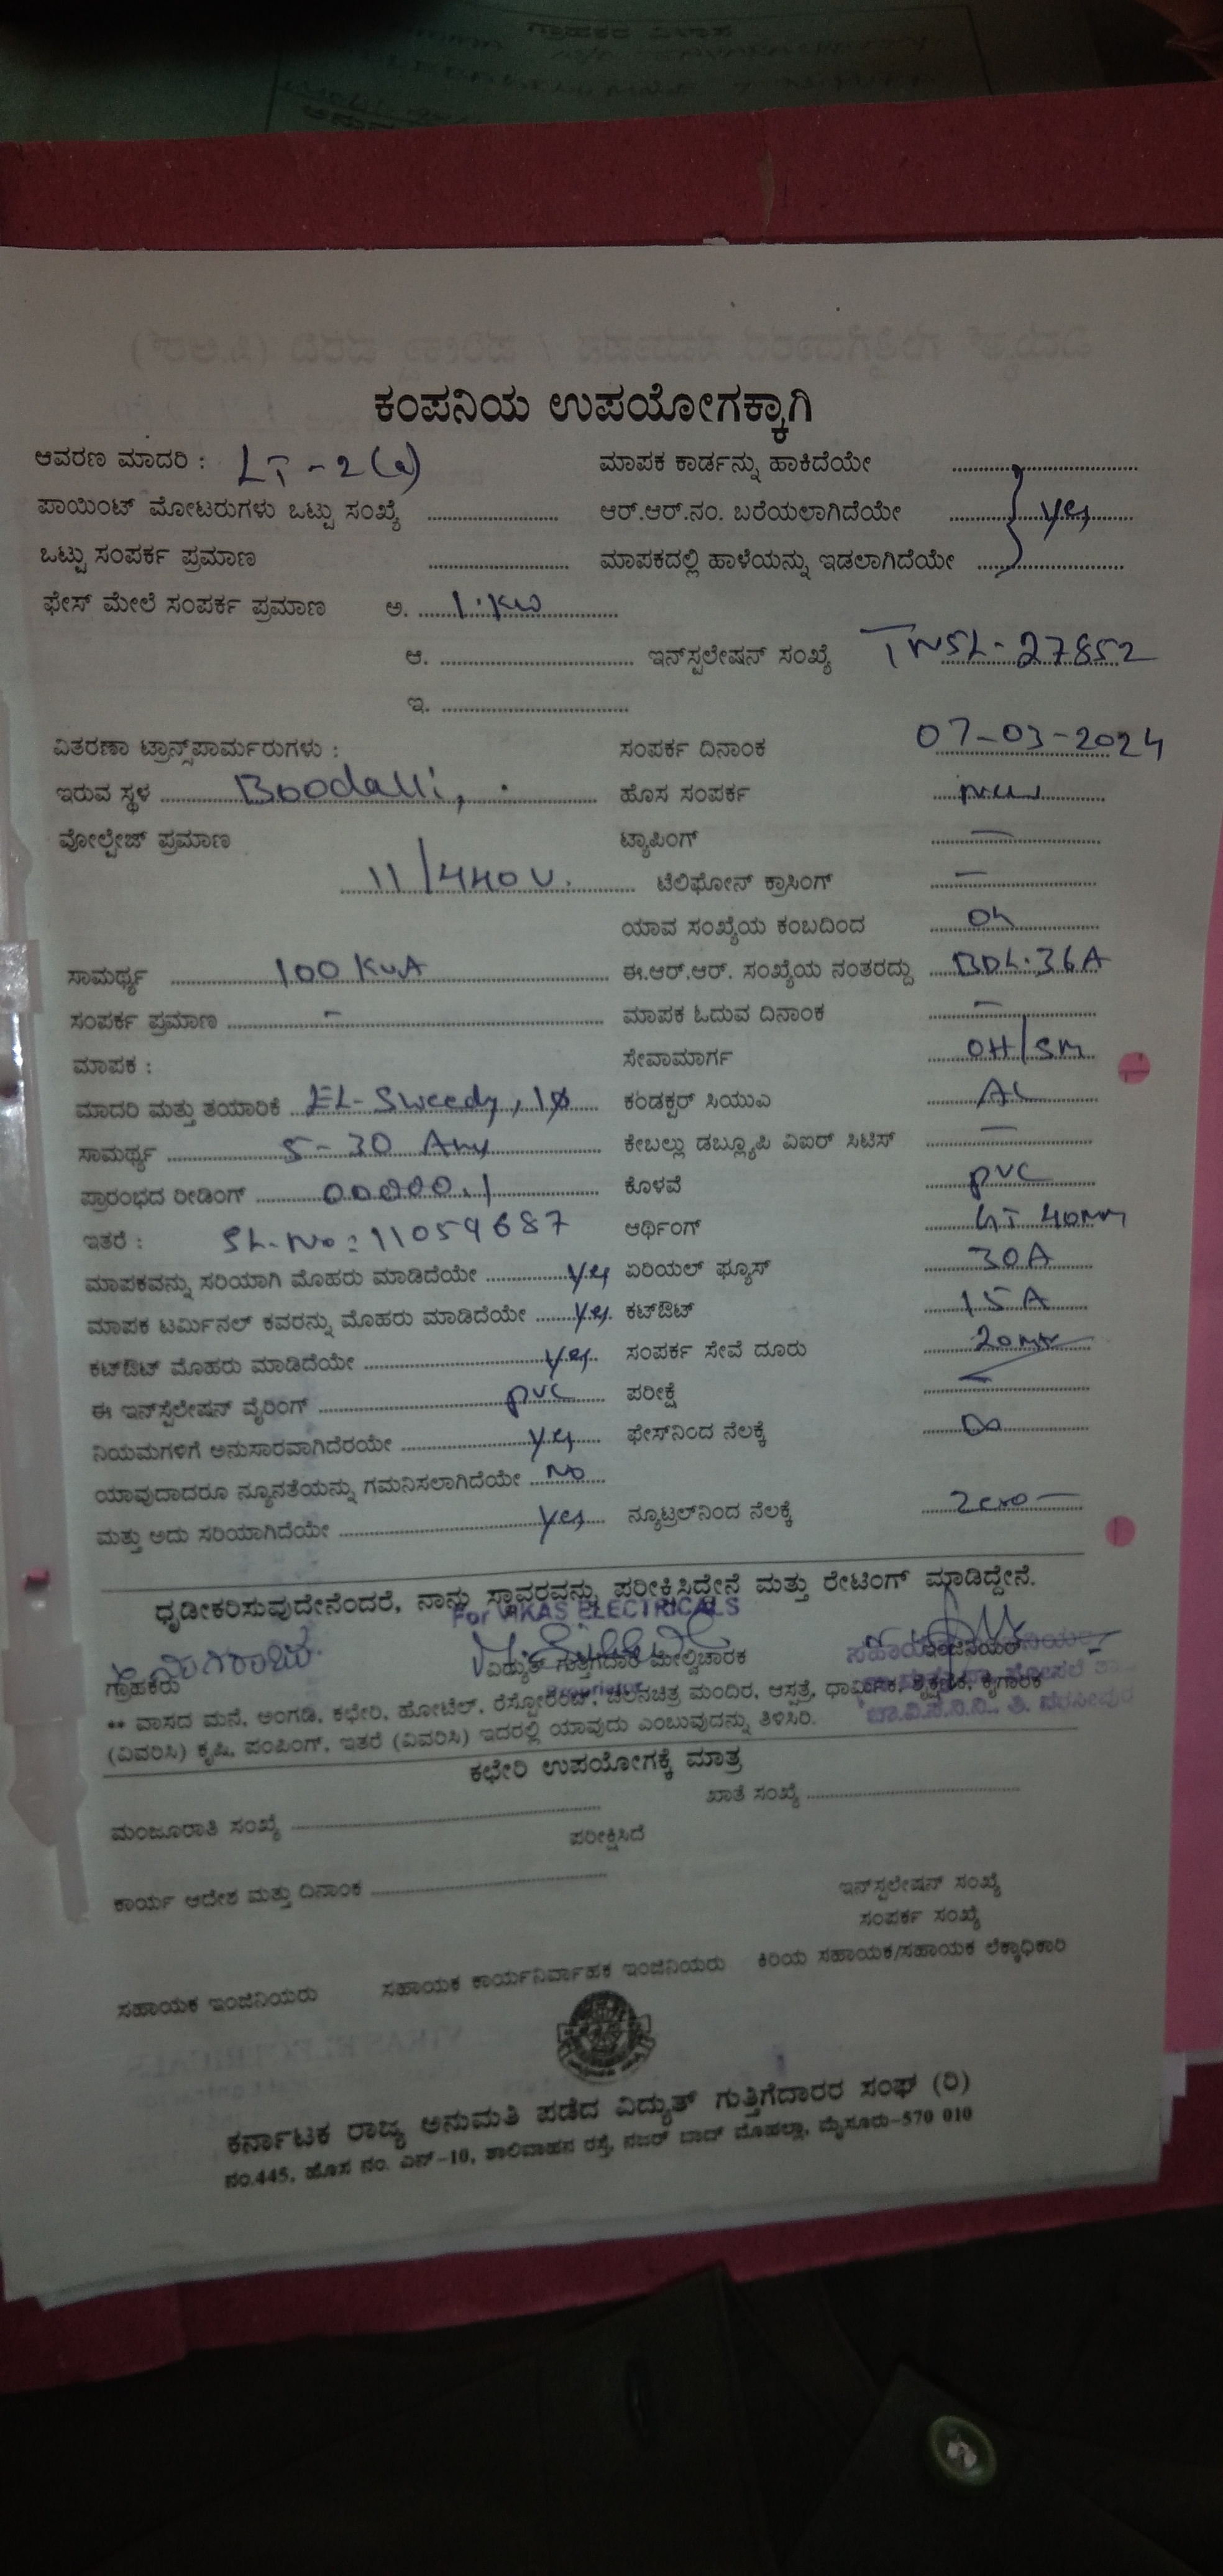 ಕಂಪನಿಯ ಉಪಯೋಗಕ್ಕಾಗಿ
ಆವರಣ ಮಾದರಿ : LT-2(a) ಮಾಪಕ ಕಾರ್ಡನ್ನು ಹಾಕಿದೆಯೇ
ಪಾಯಿಂಟ್ ಮೋಟರುಗಳು ಒಟ್ಟು ಸಂಖ್ಯೆ ಆರ್.ಆರ್.ನಂ. ಬರೆಯಲಾಗಿದೆಯೇ yes
ಒಟ್ಟು ಸಂಪರ್ಕ ಪ್ರಮಾಣ ಮಾಪಕದಲ್ಲಿ ಹಾಳೆಯನ್ನು ಇಡಲಾಗಿದೆಯೇ
ಫೇಸ್ ಮೇಲೆ ಸಂಪರ್ಕ ಪ್ರಮಾಣ ಅ. 1·KW
ಆ. ಇನ್‌ಸ್ಪಲೇಷನ್ ಸಂಖ್ಯೆ TNSL-27852
ಇ.
ವಿತರಣಾ ಟ್ರಾನ್ಸ್‌ಪಾರ್ಮರುಗಳು : ಸಂಪರ್ಕ ದಿನಾಂಕ 07-03-2024
ಇರುವ ಸ್ಥಳ Boodalli, ಹೊಸ ಸಂಪರ್ಕ new
ವೋಲ್ಟೇಜ್ ಪ್ರಮಾಣ ಟ್ಯಾಪಿಂಗ್ —
11/440 V. ಟೆಲಿಫೋನ್ ಕ್ರಾಸಿಂಗ್ —
ಯಾವ ಸಂಖ್ಯೆಯ ಕಂಬದಿಂದ
ಸಾಮರ್ಥ್ಯ 100 KVA ಈ.ಆರ್.ಆರ್. ಸಂಖ್ಯೆಯ ನಂತರದ್ದು BDL.36A
ಸಂಪರ್ಕ ಪ್ರಮಾಣ - ಮಾಪಕ ಓದುವ ದಿನಾಂಕ —
ಮಾಪಕ : ಸೇವಾಮಾರ್ಗ OH/SM
ಮಾದರಿ ಮತ್ತು ತಯಾರಿಕೆ EL-Sweedy, 1φ ಕಂಡಕ್ಟರ್ ಸಿಯುಎ AL
ಸಾಮರ್ಥ್ಯ 5-30 Amp ಕೇಬಲ್ಲು ಡಬ್ಲ್ಯೂಪಿ ವಿಐರ್ ಸಿಟಿಸ್ —
ಪ್ರಾರಂಭದ ರೀಡಿಂಗ್ 00000.1 ಕೊಳವೆ PVC
ಇತರೆ : SL-No: 11059687 ಆರ್ಥಿಂಗ್ 40mm
ಮಾಪಕವನ್ನು ಸರಿಯಾಗಿ ಮೊಹರು ಮಾಡಿದೆಯೇ yes ಏರಿಯಲ್ ಫ್ಯೂಸ್ 30A
ಮಾಪಕ ಟರ್ಮಿನಲ್ ಕವರನ್ನು ಮೊಹರು ಮಾಡಿದೆಯೇ yes. ಕಟ್‌ಔಟ್ 15A
ಕಟ್‌ಔಟ್ ಮೊಹರು ಮಾಡಿದೆಯೇ yes ಸಂಪರ್ಕ ಸೇವೆ ದೂರು
ಈ ಇನ್‌ಸ್ಪೆಲೇಷನ್ ವೈರಿಂಗ್ PVC ಪರೀಕ್ಷೆ
ನಿಯಮಗಳಿಗೆ ಅನುಸಾರವಾಗಿದೆರಯೇ yes ಫೇಸ್‌ನಿಂದ ನೆಲಕ್ಕೆ ∞
ಯಾವುದಾದರೂ ನ್ಯೂನತೆಯನ್ನು ಗಮನಿಸಲಾಗಿದೆಯೇ No
ಮತ್ತು ಅದು ಸರಿಯಾಗಿದೆಯೇ yes ನ್ಯೂಟ್ರಲ್‌ನಿಂದ ನೆಲಕ್ಕೆ Zero
ಧೃಡೀಕರಿಸುವುದೇನೆಂದರೆ, ನಾನು ಸ್ಥಾವರವನ್ನು ಪರೀಕ್ಷಿಸಿದ್ದೇನೆ ಮತ್ತು ರೇಟಿಂಗ್ ಮಾಡಿದ್ದೇನೆ.
For VIKAS ELECTRICALS
ಗ್ರಾಹಕರು ವಿದ್ಯುತ್ ಗುತ್ತಿಗೆದಾರ ಮೇಲ್ವಿಚಾರಕ ಇಂಜಿನಿಯರ್
** ವಾಸದ ಮನೆ, ಅಂಗಡಿ, ಕಛೇರಿ, ಹೋಟೆಲ್, ರೆಸ್ಟೋರೆಂಟ್, ಚಲನಚಿತ್ರ ಮಂದಿರ, ಆಸ್ಪತ್ರೆ, ಧಾರ್ಮಿಕ, ಶೈಕ್ಷಣಿಕ, ಕೈಗಾರಿಕೆ
(ವಿವರಿಸಿ) ಕೃಷಿ, ಪಂಪಿಂಗ್, ಇತರೆ (ವಿವರಿಸಿ) ಇದರಲ್ಲಿ ಯಾವುದು ಎಂಬುವುದನ್ನು ತಿಳಿಸಿರಿ.
ಕಛೇರಿ ಉಪಯೋಗಕ್ಕೆ ಮಾತ್ರ
ಮಂಜೂರಾತಿ ಸಂಖ್ಯೆ ಖಾತೆ ಸಂಖ್ಯೆ
ಪರೀಕ್ಷಿಸಿದೆ
ಕಾರ್ಯ ಆದೇಶ ಮತ್ತು ದಿನಾಂಕ
ಇನ್‌ಸ್ಪಲೇಷನ್ ಸಂಖ್ಯೆ
ಸಂಪರ್ಕ ಸಂಖ್ಯೆ
ಸಹಾಯಕ ಇಂಜಿನಿಯರು ಸಹಾಯಕ ಕಾರ್ಯನಿರ್ವಾಹಕ ಇಂಜಿನಿಯರು ಕಿರಿಯ ಸಹಾಯಕ/ಸಹಾಯಕ ಲೆಕ್ಕಾಧಿಕಾರಿ
ಕರ್ನಾಟಕ ರಾಜ್ಯ ಅನುಮತಿ ಪಡೆದ ವಿದ್ಯುತ್ ಗುತ್ತಿಗೆದಾರರ ಸಂಘ (ರಿ)
ನಂ.445, ಹೊಸ ನಂ. ಎನ್-10, ಶಾಲಿವಾಹನ ರಸ್ತೆ, ನಜರ್ ಬಾದ್ ಮೊಹಲ್ಲಾ, ಮೈಸೂರು-570 010